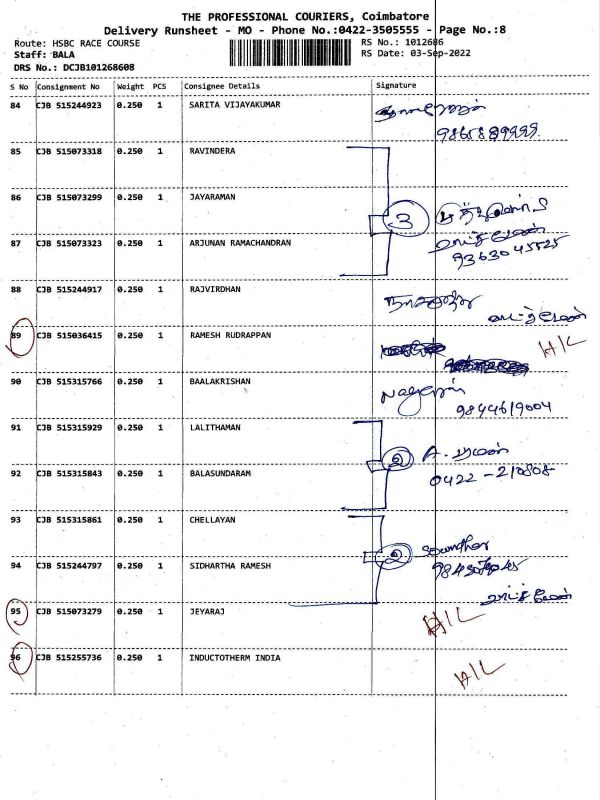 THE PROFESSIONAL COURIERS, Coimbatore
Delivery Runsheet - MO - Phone No.:0422-3505555 - Page No.:8
Route: HSBC RACE COURSE
RS No.: 1012686
Staff: BALA
RS Date: 03-Sep-2022
DRS No.: DCJB101268608
S No Consignment No Weight PCS Consignee Details Signature
84 CJB 515244923 0.250 1 SARITA VIJAYAKUMAR
85 CJB 515073318 0.250 1 RAVINDERA
86 CJB 515073299 0.250 1 JAYARAMAN
3
87 CJB 515073323 0.250 1 ARJUNAN RAMACHANDRAN
9363045525
88 CJB 515244917 0.250 1 RAJVIRDHAN
89 CJB 515036415 0.250 1 RAMESH RUDRAPPAN H/L
90 CJB 515315766 0.250 1 BAALAKRISHAN
9844619004
91 CJB 515315929 0.250 1 LALITHAMAN
2 A.
92 CJB 515315843 0.250 1 BALASUNDARAM
0422 - 210808
93 CJB 515315861 0.250 1 CHELLAYAN
2
94 CJB 515244797 0.250 1 SIDHARTHA RAMESH
95 CJB 515073279 0.250 1 JEYARAJ H/L
96 CJB 515255736 0.250 1 INDUCTOTHERM INDIA H/L